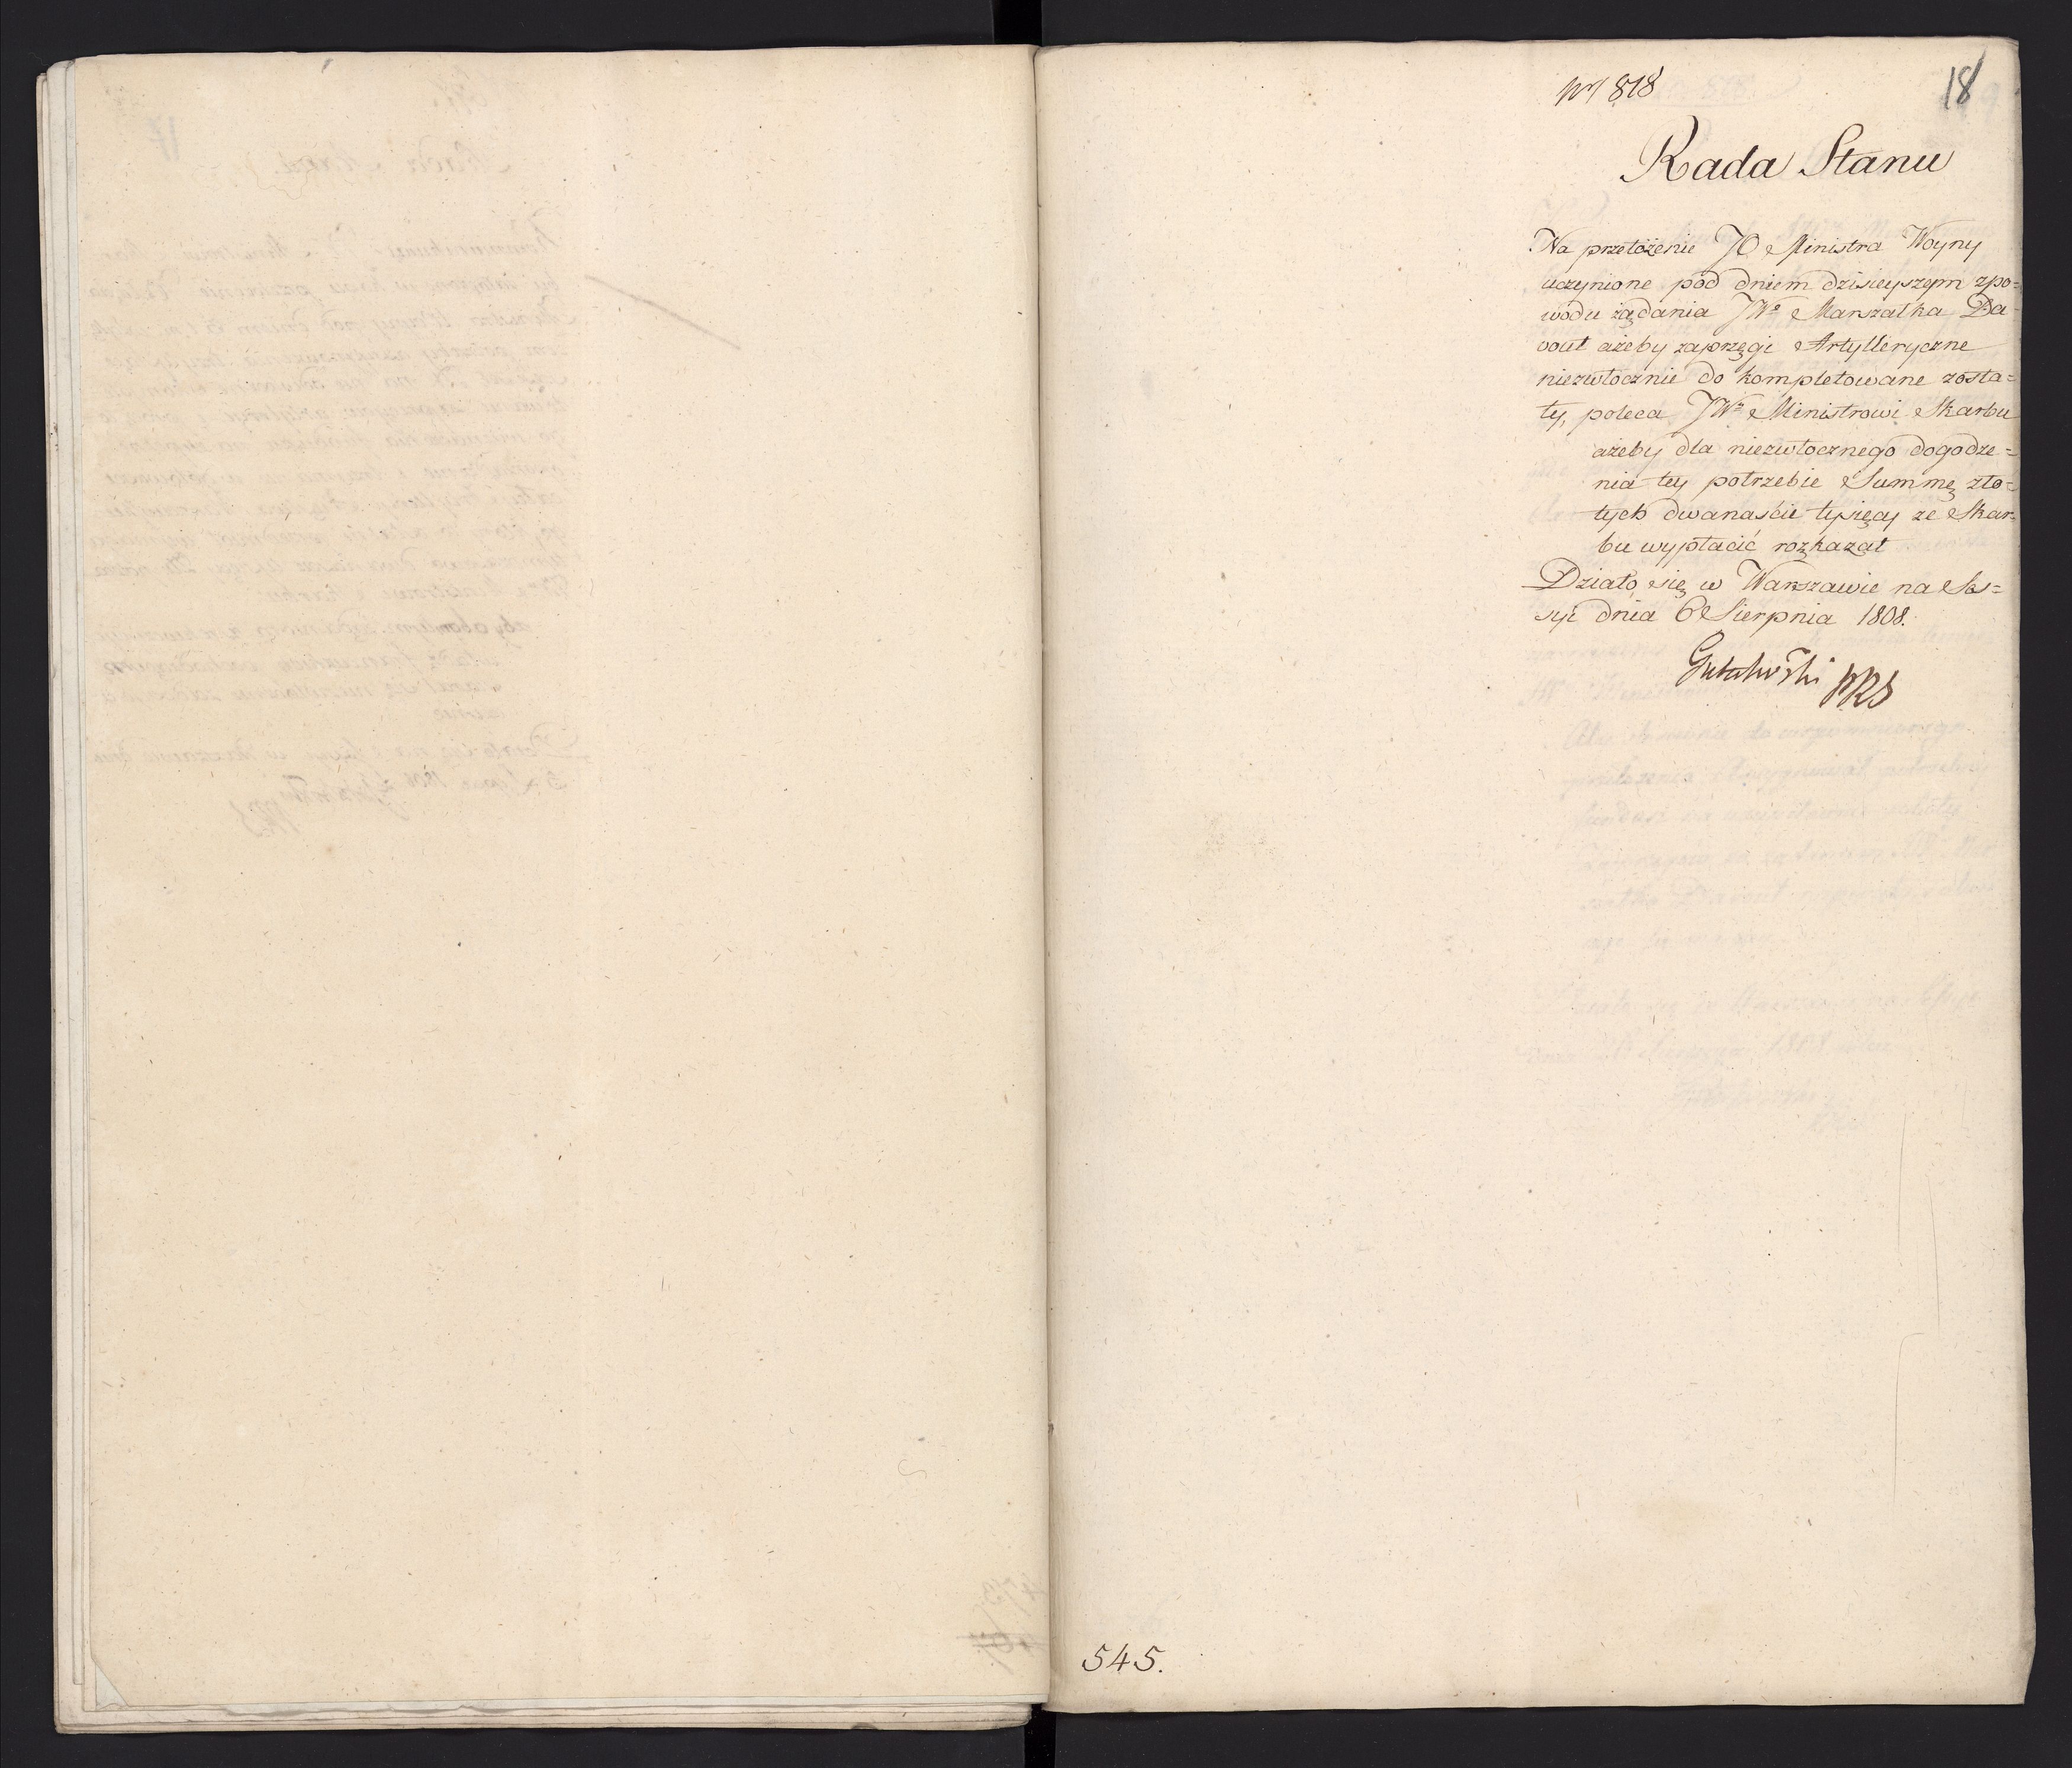 Nr 818
18
Rada Stanu
Na przełożenie JO Ministra Woyny
uczynione pod dniem dzisieyszem zpo=
wodu żądania JWo Marszałka Da=
vout ażeby zaprzęgi Artylleryczne
niezwłocznie do kompletowane zosta=
ły, poleca JWu Ministrowi Skarbu
ażeby dla niezwłocznego dogodze=
nia tey potrzebie Summę zło=
tych dwanaście tysięcy ze Skar=
bu wypłacić rozkazał
Działo się w Warszawie na Ses=
syi dnia 6 Sierpnia 1808.
Gutakowski PRS
545.